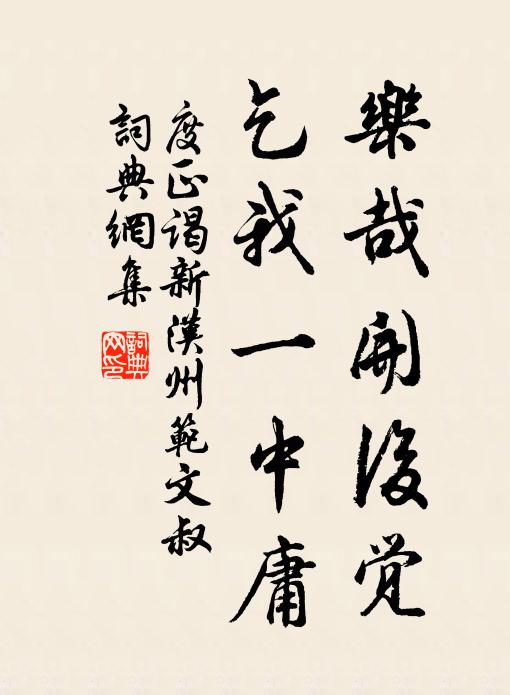 樂哉開後觉
乞我一中庸
度正谒新漢州範文叔
詞典網集
詞典网印